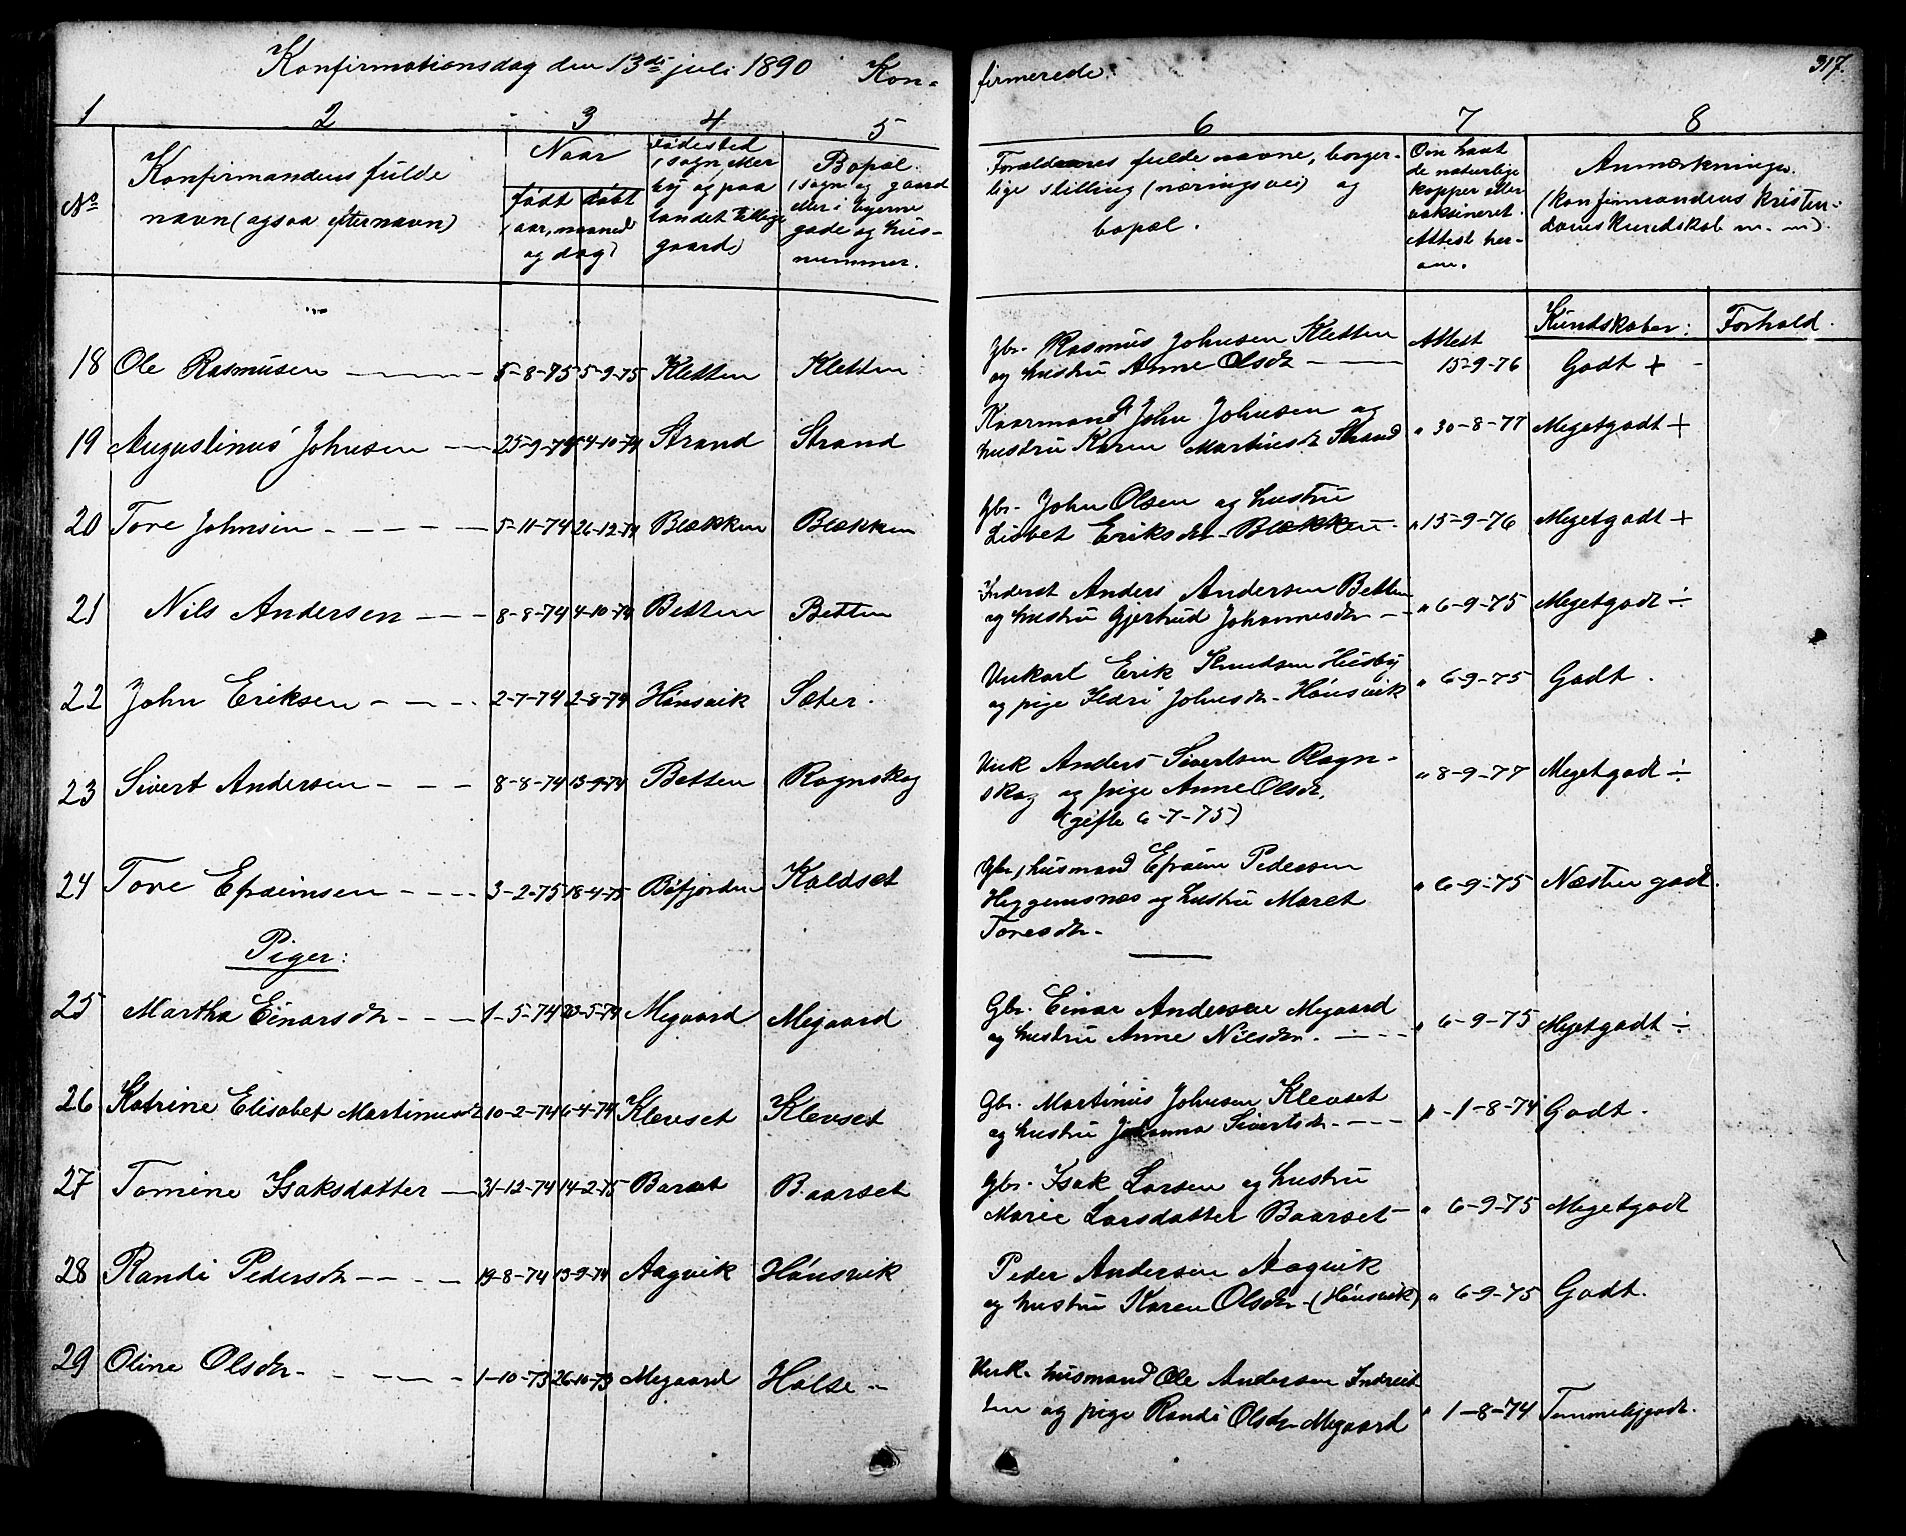 Konfirmationsdag den 13de juli 1890 Kon-
firmerede. 317.
1 2 3 4 5 6 7 8
No
Konfirmandens fulde
navn (ogsaa efternavn)
Naar
født døbt
(aar, maaned
og dag)
Fødested
(sogn, eller
by og paa
landet tillige
gaard)
Bopæl.
(sogn og gaard
eller i byerne
gade og hus-
nummer.
Forældrenes fulde navne, borger-
lige stilling (næringsvei) og
bopæl.
Om havt
de naturlige
kopper eller
vaksineret.
Attest her-
om.
Anmærkninger.
(konfirmandens kristen-
domskundskab m. m).
Kundskaber: Forhold.
18 Ole Rasmusen 5-8-75 5-9-75 Kletten Kletten
Gbr. Rasmus Johnsen Kletten
og hustru Anne Olsdr
Attest
15-9-76 Godt +
19 Augustinus Johnsen 25-9-74 4-10-74 Strand Strand
Kaarmand John Johnsen og
hustru Karen Martinsdr Strand
" 30-8-77 Megetgodt +
20 Tore Johnsen 5-11-74 26-12-74 Blækken Blækken
Gbr. John Olsen og hustru
Lisbet Eriksdr. Blækken
" 15-9-76 Megetgodt +
21 Nils Andersen 8-8-74 4-10-74 Betten Betten
Inderst Anders Andersen Betten
og hustru Gjertrud Johannesdr
" 6-9-75 Megetgodt ÷
22 John Eriksen 2-7-74 2-8-74 Hønsvik Sæter.
Unkarl Erik Knudsen Husby
og pige Ildri Johnsdr. Hønsvik
" 6-9-75 Godt.
23 Sivert Andersen 8-8-74 13-9-74 Betten Rognskog
Unk Anders Sivertsen Rogn-
skog og pige Anne Olsdr.
(gifte 6-7-75)
" 8-9-77 Megetgodt ÷
24 Tore Efraimsen 3-2-75 18-4-75 Bøfjorden Koldset
Gbr, husmand Efraim Pedersen
Heggemsnes og hustru Maret
Toresdr.
" 6-9-75 Næsten godt.
Piger:
25 Martha Einarsdr 1-5-74 30-5-74 Megaard Megaard
Gbr. Einar Andersen Megaard
og hustru Anne Nilsdr.
" 6-9-75 Megetgodt ÷
26 Katrine Elisabet Martinusdr 10-2-74 6-4-74 Klevset Klevset
Gbr. Martinus Johnsen Klevset
og hustru Johanna Sivertsdr.
" 1-8-74 Godt.
27 Tomine Isaksdatter 31-12-74 14-2-75 Baraset Baarset
Gbr. Isak Larsen og hustru
Marie Larsdatter Baarset
" 6-9-75 Megetgodt
28 Randi Pedersdr 19-8-74 13-9-74 Aagvik Hønsvik
Peder Andersen Aagvik
og hustru Karen Olsdr (Hønsvik)
" 6-9-75 Godt.
29 Oline Olsdr. 1-10-73 26-10-73 Megaard Halse
Unk. husmand Ole Andersen Indreid
og pige Randi Olsdr. Megaard
" 1-8-74 Temmeliggodt.